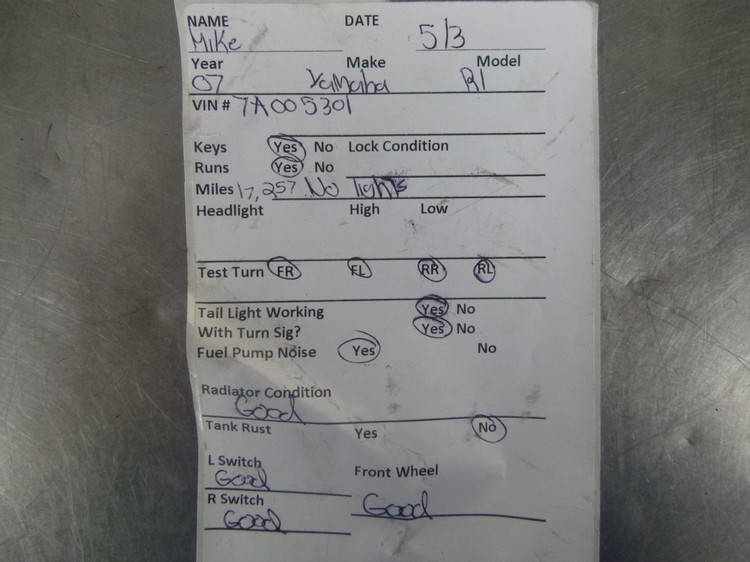 NAME DATE
Mike 5/3
Year Make Model
07 Yamaha R1
VIN # 7A005301
Keys Yes No Lock Condition
Runs Yes No
Miles 17,257 No lights
Headlight High Low
Test Turn FR FL RR RL
Tail Light Working Yes No
With Turn Sig? Yes No
Fuel Pump Noise Yes No
Radiator Condition
Good
Tank Rust Yes No
L Switch Front Wheel
Good
R Switch Good
Good